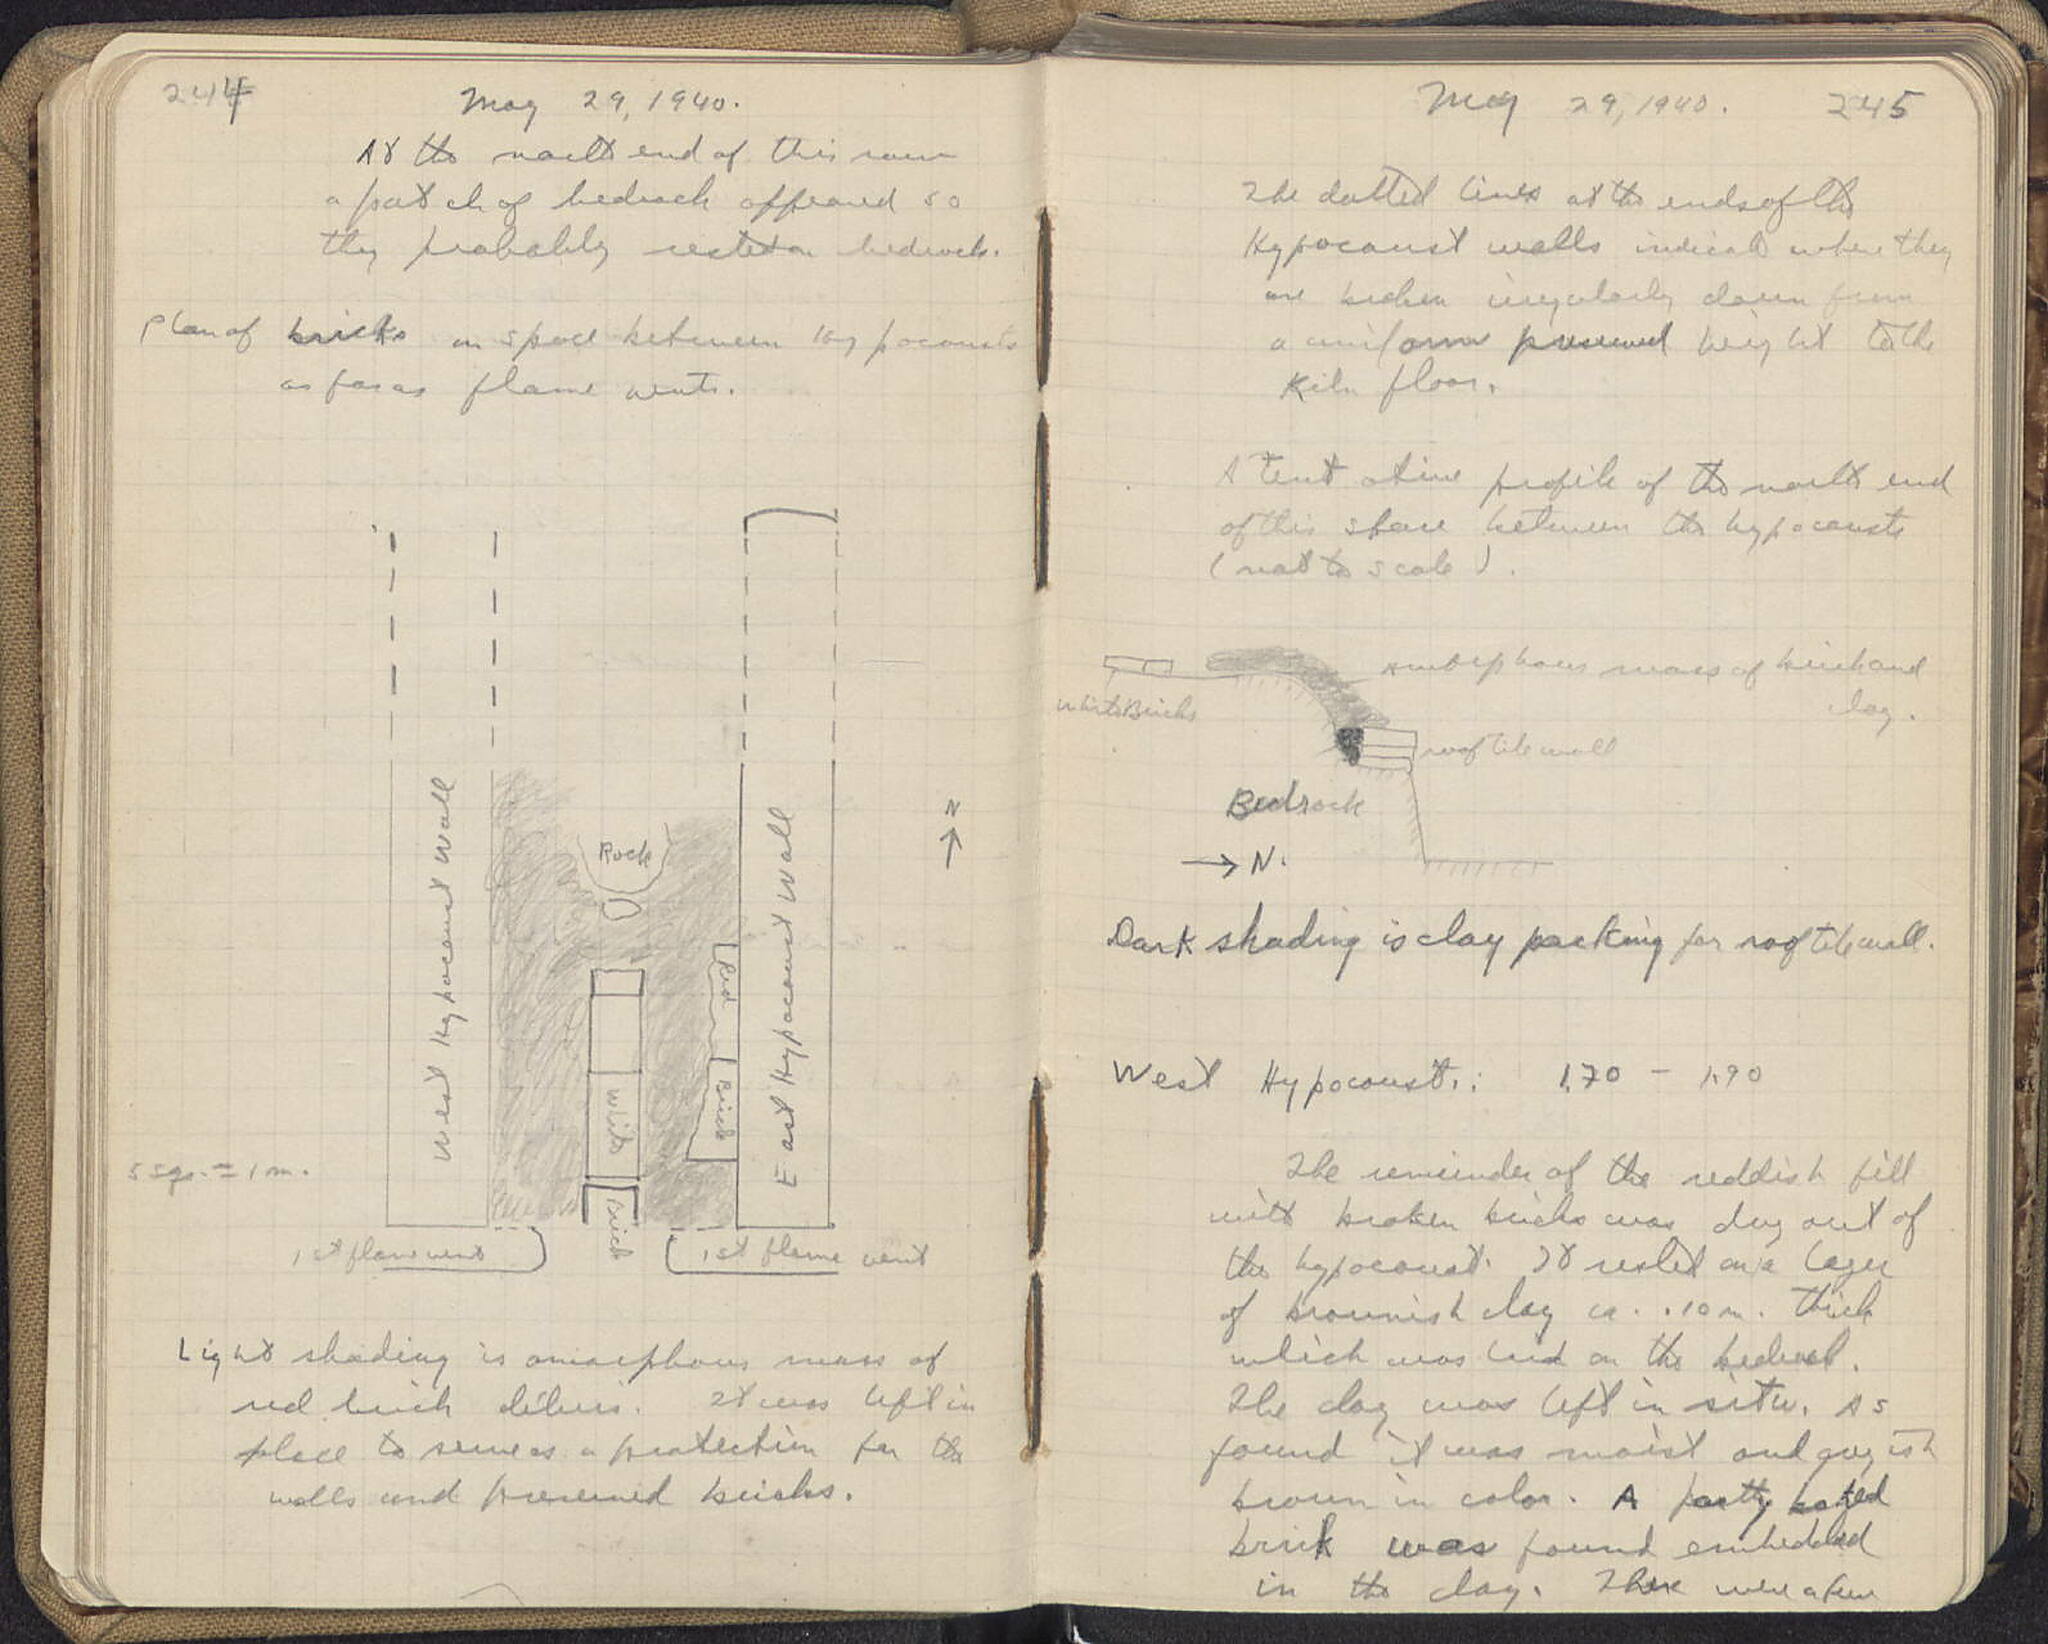 244
May 29, 1940.
At the north end of this room
a patch of bedrock appeared so
they probably rested on bedrock.
Plan of bricks in space between hypocausts
as far as flame vents.
N
Rock
West Hypocaust Wall
East Hypocaust Wall
Red
Brick
White
Brick
5 sqs. = 1 m.
1st flame vent
1st flame vent
Light shading is amorphous mass of
red brick debris. It was left in
place to serve as a protection for the
walls and preserved bricks.
May 29, 1940.
245
The dotted lines at the ends of the
Hypocaust walls indicate where they
are broken irregularly down from
a uniform preserved height to the
Kiln floor.
A tentative profile of the north end
of this space between the hypocausts
(not to scale).
amorphous mass of brick and
clay.
White Bricks
roof tile wall
Bedrock
→ N.
Dark shading is clay packing for roof tile wall.
West Hypocaust: 1.70 - 1.90
The reminder of the reddish fill
with broken bricks was dug out of
the hypocaust. It rested on a layer
of brownish clay ca. .10 m. thick
which was laid on the bedrock.
The clay was left in situ. As
found it was moist and grayish
brown in color. A partly baked
brick was found embedded
in the clay. There were a few